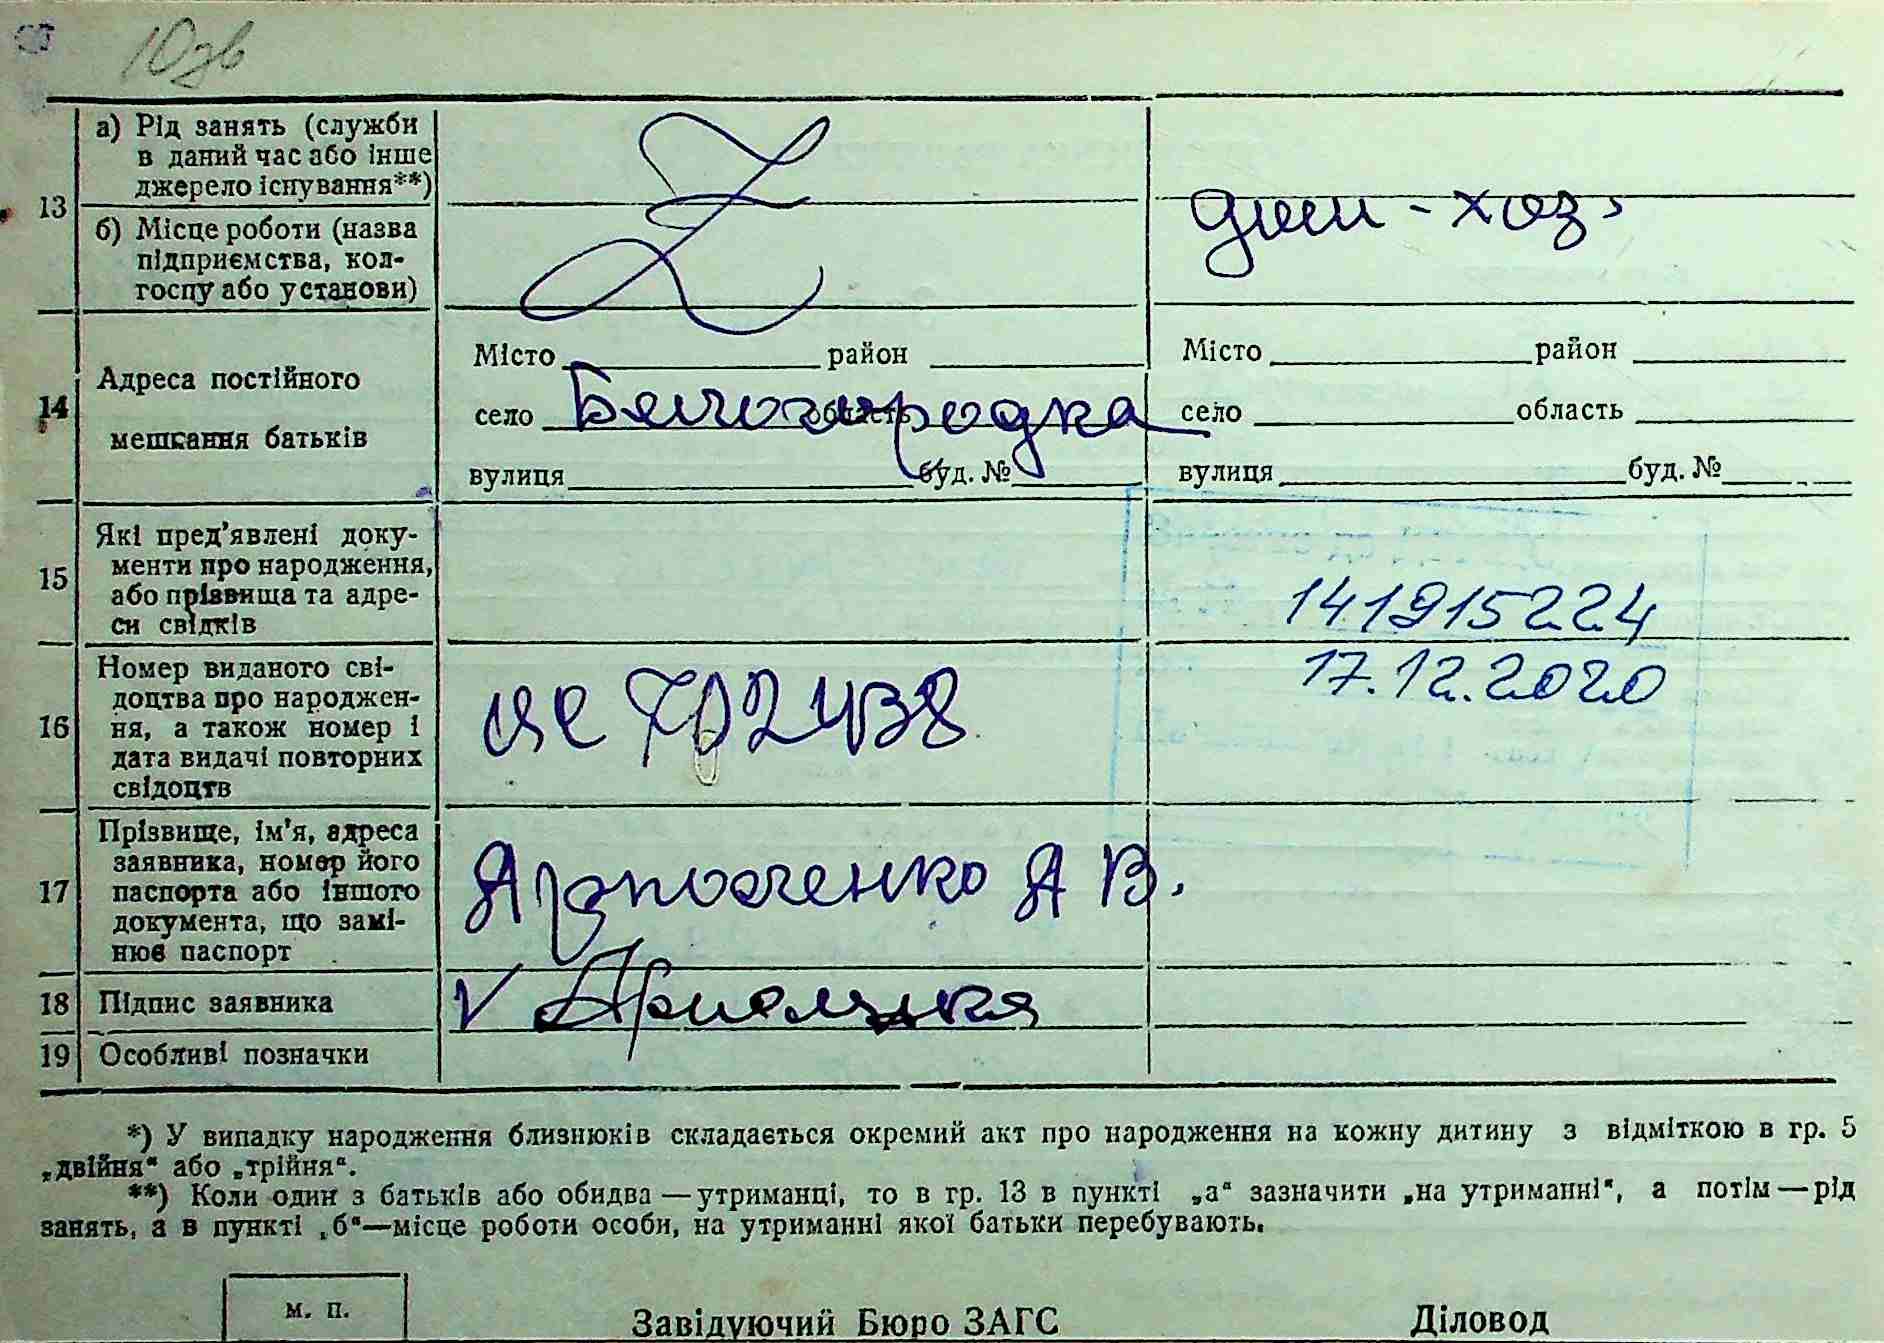 13
а) Рід занять (служби
в даний час або інше
джерело існування**)
б) Місце роботи (назва
підприємства, кол-
госпу або установи)
дом-хоз.
14
Адреса постійного
мешкання батьків
Місто район
село Білогородка область
вулиця буд. №
Місто район
село область
вулиця буд. №
15
Які пред’явлені доку-
менти про народження,
або прізвища та адре-
си свідків
141915224
16
Номер виданого сві-
доцтва про народжен-
ня, а також номер і
дата видачі повторних
свідоцтв
702438
17.12.2020
17
Прізвище, ім’я, адреса
заявника, номер його
паспорта або іншого
документа, що замі-
нює паспорт
А В.
18 Підпис заявника
19 Особливі позначки
*) У випадку народження близнюків складається окремий акт про народження на кожну дитину з відміткою в гр. 5
„двійня“ або „трійня“.
**) Коли один з батьків або обидва — утриманці, то в гр. 13 в пункті „а“ зазначити „на утриманні“, а потім — рід
занять, а в пункті „б“—місце роботи особи, на утриманні якої батьки перебувають.
м. п.
Завідуючий Бюро ЗАГС Діловод